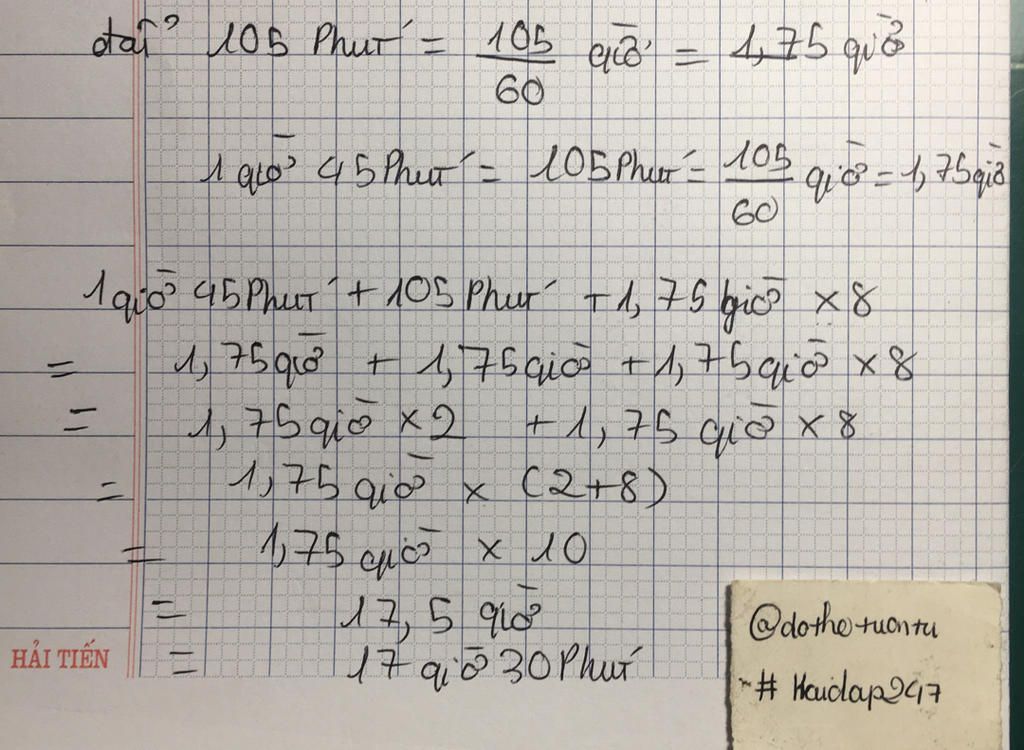 đổi 105 Phút = 105/60 giờ = 1,75 giờ
1 giờ 45 Phút = 105 Phút = 105/60 giờ = 1,75 giờ
1 giờ 45 Phút + 105 Phút + 1,75 giờ × 8
= 1,75 giờ + 1,75 giờ + 1,75 giờ × 8
= 1,75 giờ × 2 + 1,75 giờ × 8
= 1,75 giờ × (2+8)
= 1,75 giờ × 10
= 17,5 giờ
= 17 giờ 30 Phút
HẢI TIẾN
@dothetuantu
# Hoidap247